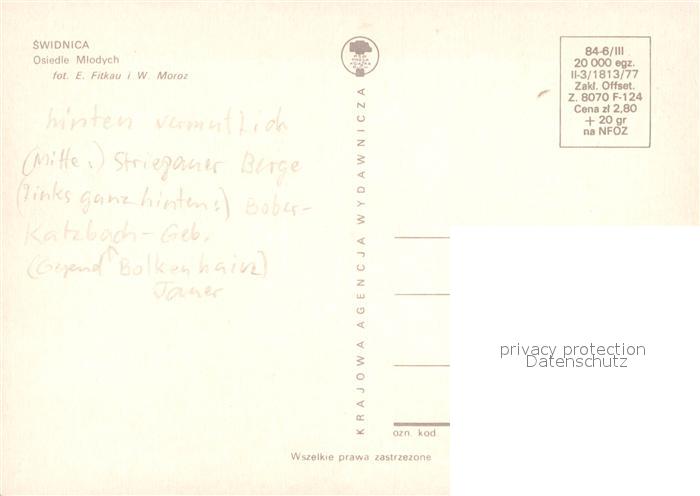 ŚWIDNICA
Osiedle Młodych
fot. E. Fitkau i W. Moroz
hinten vermutlich
(Mitte:) Striegauer Berge
(links ganz hinten:) Bober-
Katzbach-Geb.
(Gegend Bolkenhain)
Jauer
KRAJOWA AGENCJA WYDAWNICZA
84-6/III
20 000 egz.
II-3/1813/77
Zakł. Offset.
Z. 8070 F-124
Cena zł 2,80
+ 20 gr
na NFOZ
privacy protection
Datenschutz
ozn. kod.
Wszelkie prawa zastrzeżone